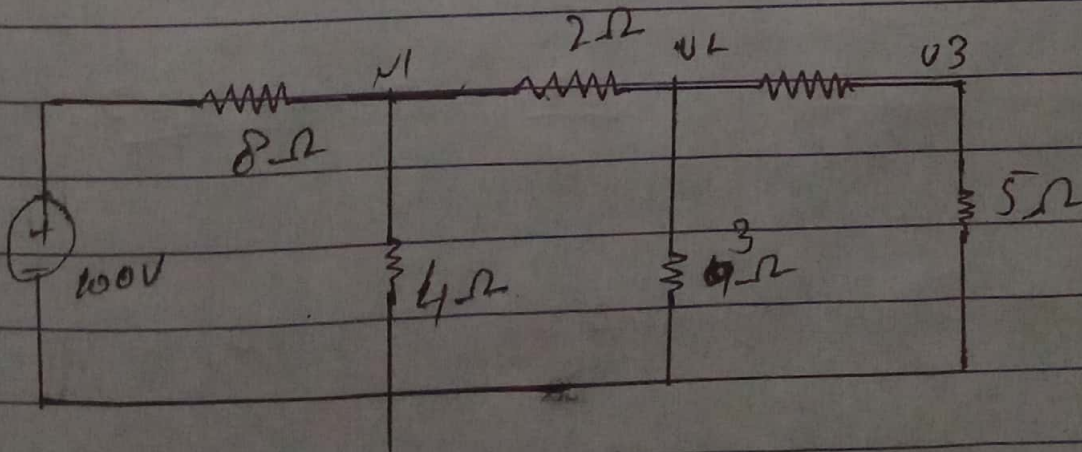 2Ω
V1
V2
V3
8Ω
5Ω
3
Ω
100V
4Ω